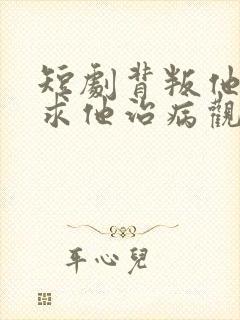 短劇背叛他
求他治病觀
平心兒